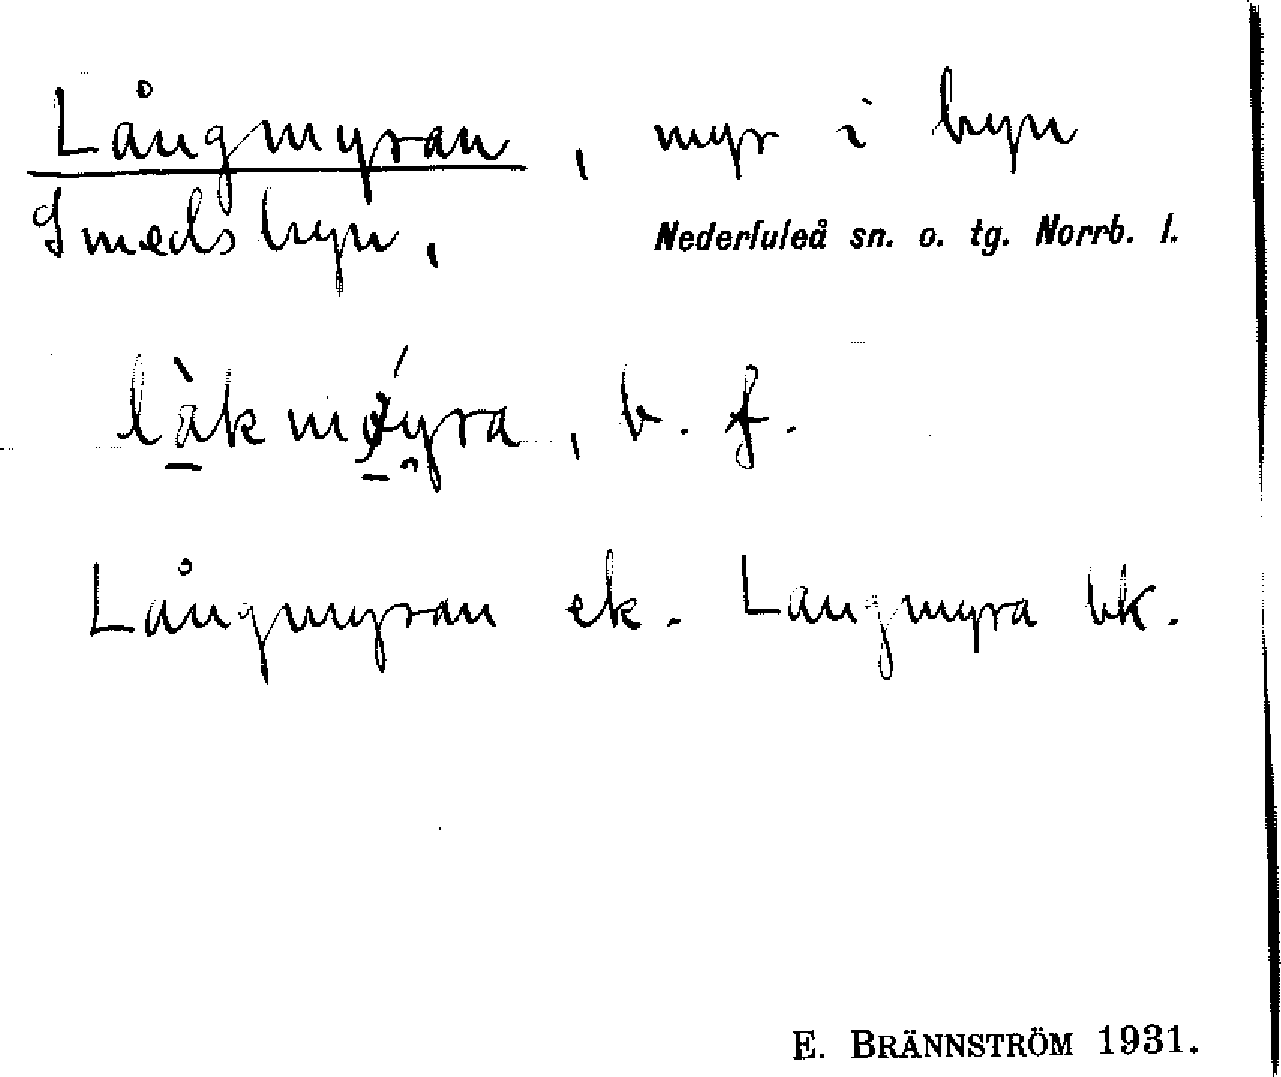 Långmyran, myr i byn
Smedsbyn, Nederluleå sn. o. tg. Norrb. l.
làkmǿyra, b. f.
Långmyran ek. Langmyra hk.
E. BRÄNNSTRÖM 1931.